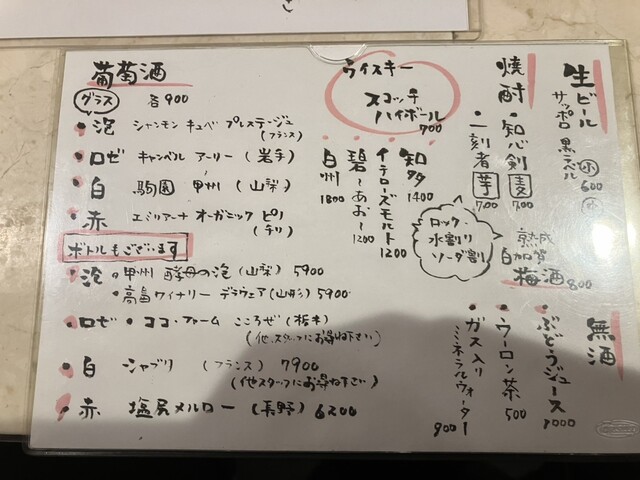 葡萄酒
グラス 各900
・泡 シャンモン キュベ プレステージュ
(フランス)
・ロゼ キャンベル アーリー (岩手)
・白 駒園 甲州 (山梨)
・赤 エミリアーナ オーガニック ピノ
(チリ)
ボトルもございます
・泡・甲州 酵母の泡 (山梨) 5900
・高畠ワイナリー デラウェア(山形) 5900
・ロゼ・ココ・ファーム こころぜ (栃木)
(他、スタッフにお尋ね下さい)
・白 シャブリ (フランス) 7900
(他スタッフにお尋ね下さい)
・赤 塩尻メルロー (長野) 6200
ウイスキー
スコッチ
ハイボール
700
・知多
1400
・イチローズモルト
1200
・碧~あお~
1200
・白州
1800
ロック・
水割り
ソーダ割
焼酎
・知心剣 麦
700
・一刻者 芋
700
生ビール
サッポロ 黒ラベル
小
600
熟成
白加賀
梅酒 800
無酒
・ぶどうジュース
1000
・ウーロン茶
500
・ガス入り
ミネラルウォーター
900